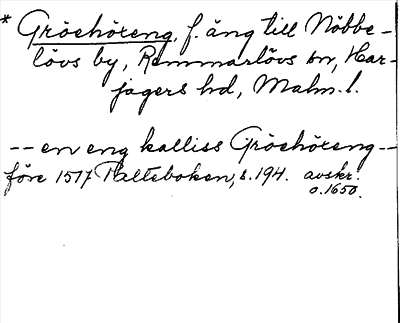 * Gröehöreng, f. äng till Nöbbe-
lövs by, Remmarlövs sn, Har-
jagers hd, Malm. l.
-- en eng kalliss Gröehöreng --
före 1517 Palteboken, s. 194. avskr.
o. 1650.